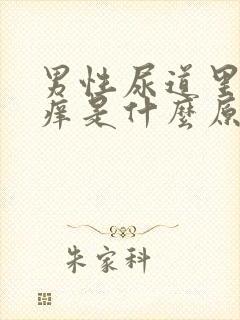 男性尿道里
痒是什麼原
朱家科